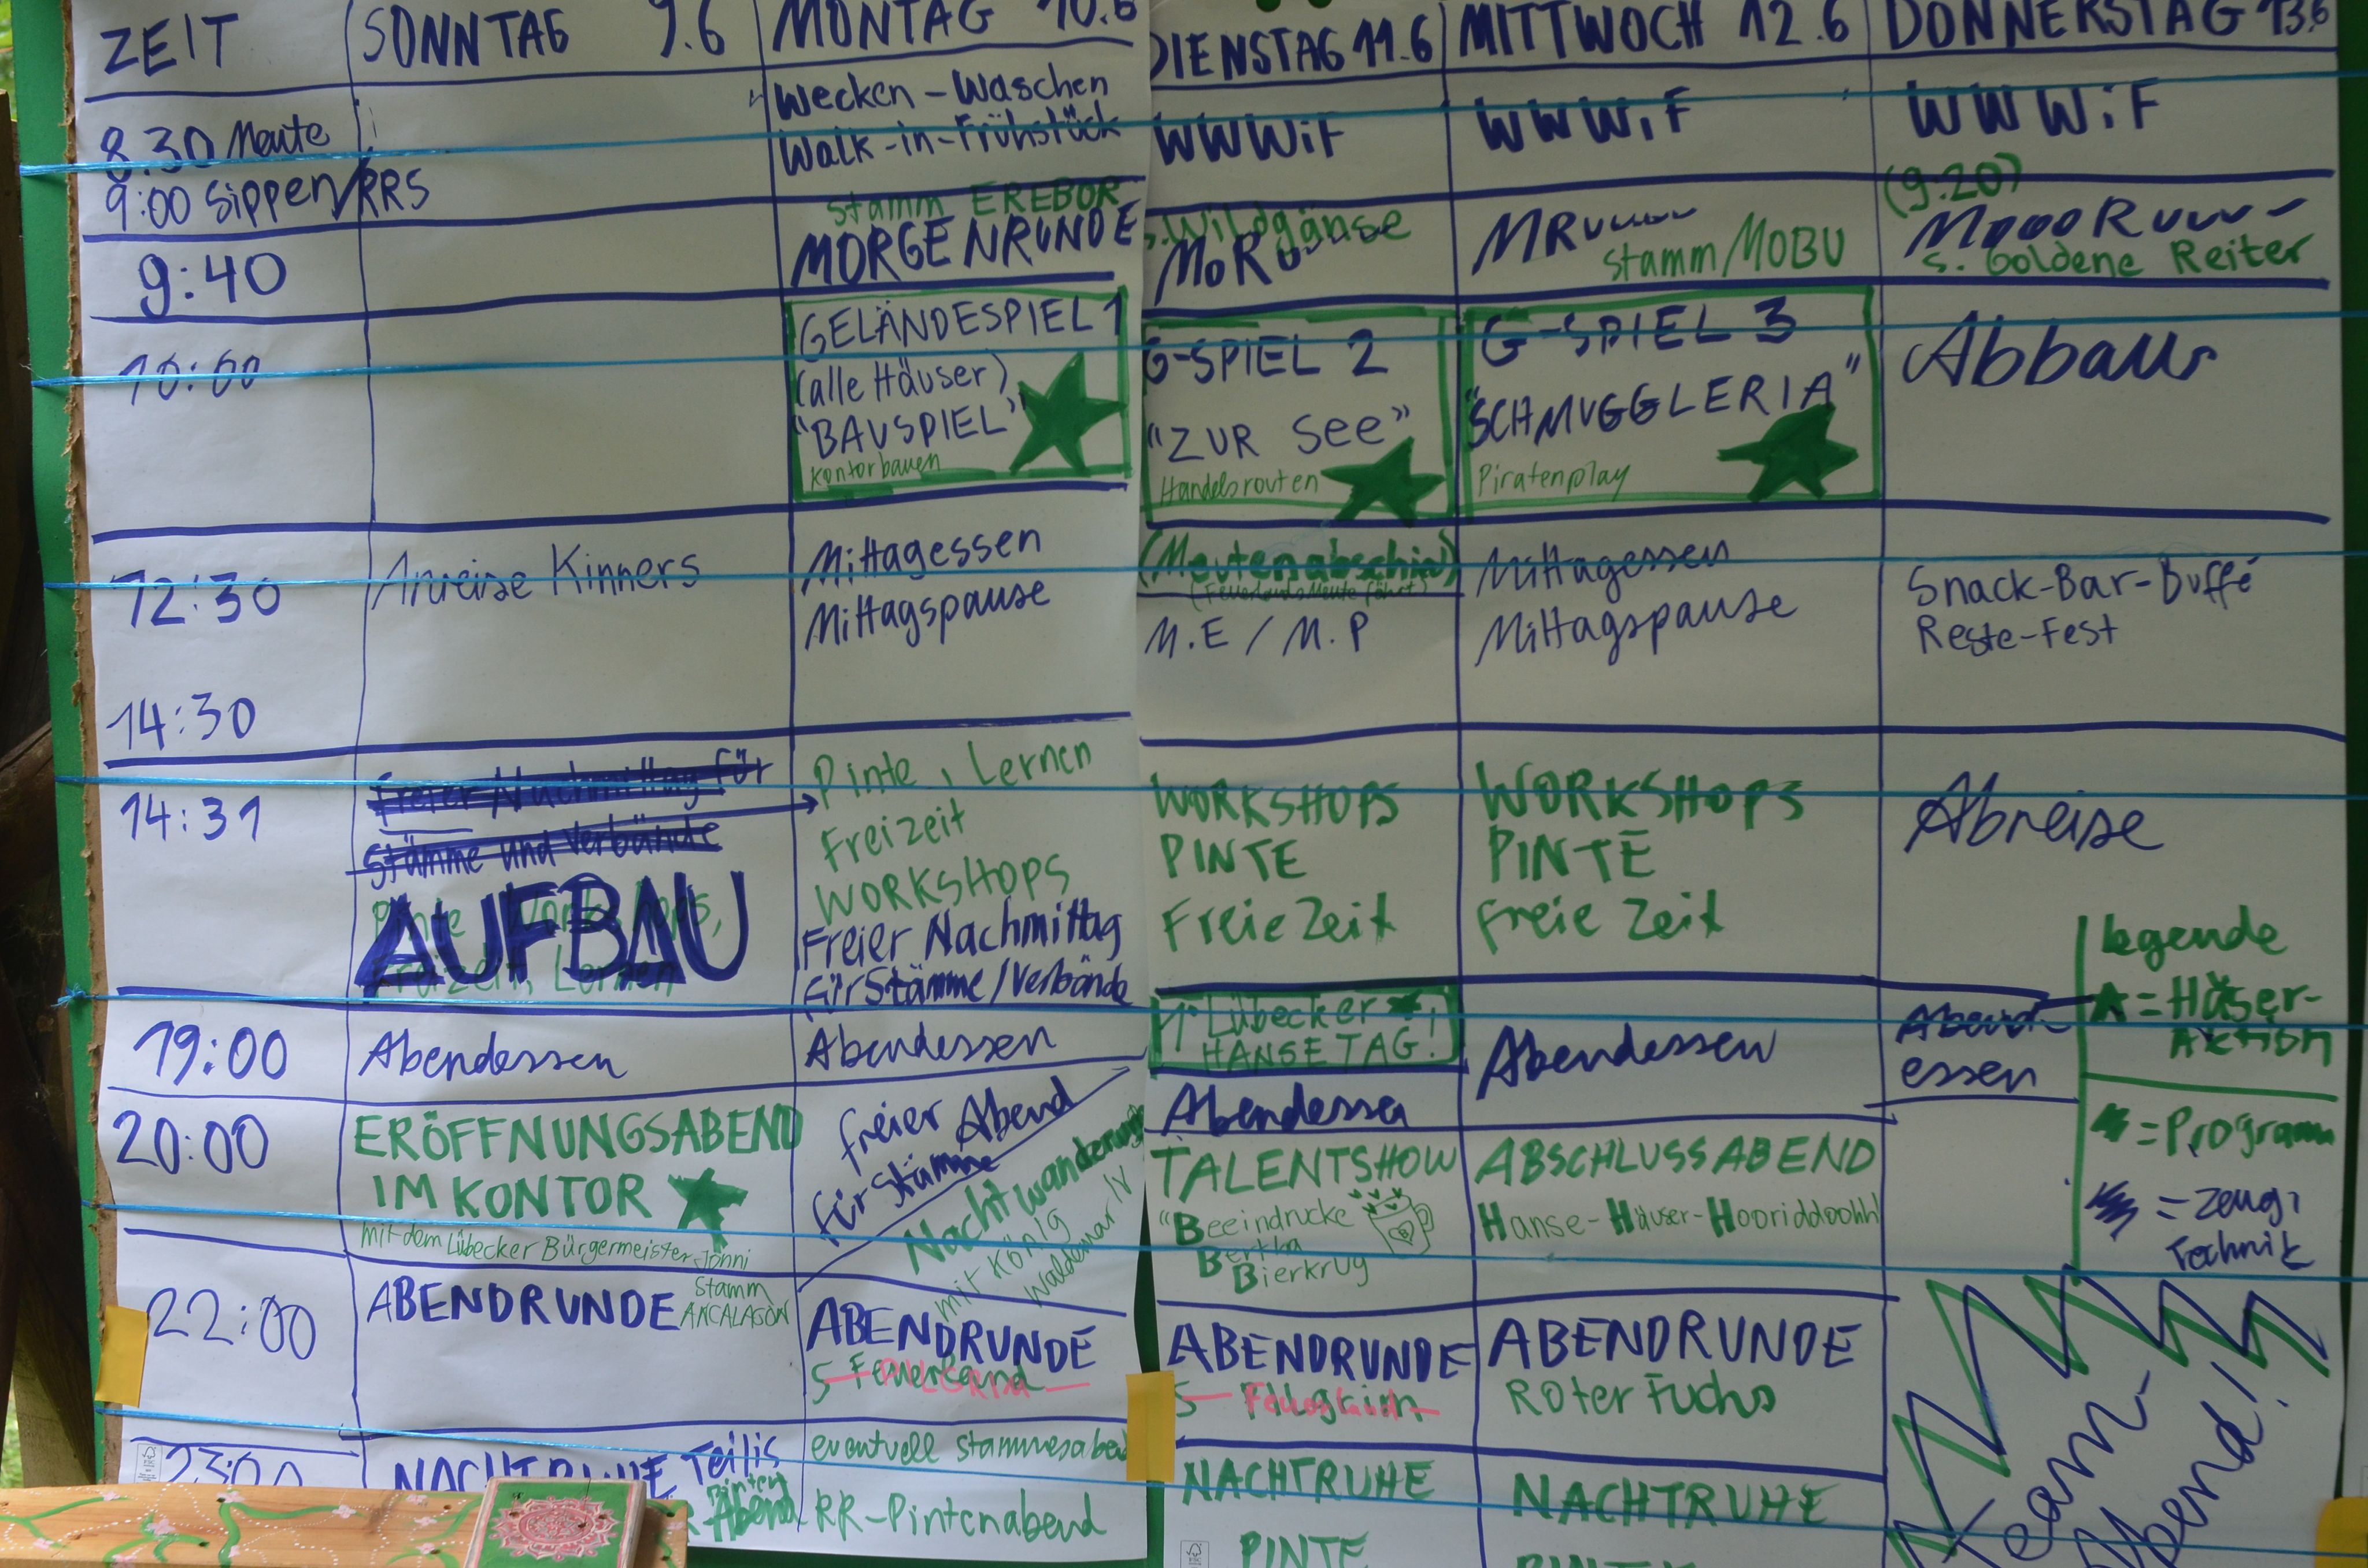 ZEIT
SONNTAG 9.6
MONTAG 10.6
DIENSTAG 11.6
MITTWOCH 12.6
DONNERSTAG 13.6
8.30 Meute
9:00 Sippen/RRS
Wecken-Waschen
Walk-in-Frühstück
WWWiF
WWWiF
WWWiF
9:40
Stamm EREBOR
MORGENRUNDE
S. Wildgänse
MoRu
MRuuuu
Stamm MOBU
(9:20)
MoooRuuu-
S. Goldene Reiter
10:00
GELÄNDESPIEL 1
(alle Häuser)
"BAUSPIEL"
Kontorbauen
G-SPIEL 2
"ZUR See"
Handelsrouten
G-SPIEL 3
"SCHMUGGLERIA"
Piratenplay
Abbau
12:30
14:30
Anreise Kinners
Mittagessen
Mittagspause
(Meutenabschied)
(Feuerlands Meute fährt)
M.E / M.P
Mittagessen
Mittagspause
Snack-Bar-Buffé
Reste-Fest
14:31
Freier Nachmittag für
Stämme und Verbände
AUFBAU
Pinte, Workshops,
Freizeit, Lernen
Pinte, Lernen
Freizeit
WORKSHOPS
Freier Nachmittag
für Stämme/Verbände
WORKSHOPS
PINTE
Freie Zeit
WORKSHOPS
PINTE
Freie Zeit
Abreise
19:00
Abendessen
Abendessen
Lübecker
HANSETAG!
Abendessen
Abendessen
Abend-
essen
Legende
= Häuser-
Aktion
= Programm
= Zeug,
Technik
20:00
ERÖFFNUNGSABEND
IM KONTOR
mit dem Lübecker Bürgermeister Jonni
freier Abend
für Stämme
Nachtwanderung
mit König
Waldemar IV
TALENTSHOW
"Beeindrucke
Bertha
Bierkrug
ABSCHLUSSABEND
Hanse-Häuser-Hooriddoohh!
22:00
ABENDRUNDE
Stamm
ANCALAGON
ABENDRUNDE
S Feuerland
ABENDRUNDE
S
ABENDRUNDE
Roter Fuchs
Team-
Abend!
23:00
NACHTRUHE Teilis
Pinten
Abend
eventuell Stammesabend
RR-Pintenabend
NACHTRUHE
PINTE
NACHTRUHE
PINTE